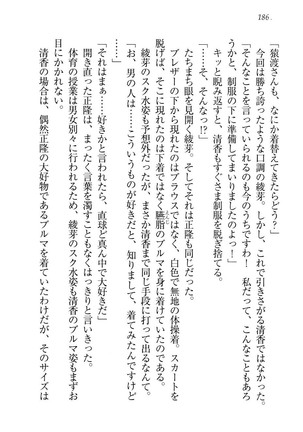 186
「猿渡さんも、なにか着替えてきたらどう?」
今回は勝ち誇ったような口調の綾芽。しかし、これで引きさがる清香ではなかった。
「そんなことを言っていられるのも今のうちですわ! 私だって、こんなこともあろ
うかと、制服の下に準備してまいりましたのよっ!」
キッと睨み返すと、清香もすぐさま制服を脱ぎ捨てる。
「そ、そんなっ!?」
たちまち驚く綾芽。しかし、そしてそれは正隆も同じだった。
ブレザーの下から現れたのはブラウスではなく、白色で無地の体操着。スカートを
脱げば、そこに現れたのは臙脂のブルマを身に着けていたのである。
綾芽のスク水姿も予想外だったが、まさか清香まで同じ手段に打って出るなんて。
「お、男の人は……こういうものが好きだと、知りまして、着てみたんですけど
……」
「それはまぁ……好きかと言われたら、直球ど真ん中で大好きだ」
開き直った正隆は、まったく言葉を濁すこともなくはっきりと言いきった。
体育の授業は男女別々に行われるため、綾芽のスク水姿も清香のブルマ姿もまずお
目にかかれない。
清香の場合は、偶然正隆の大好物であるブルマを着ていたわけだが、そのサイズは